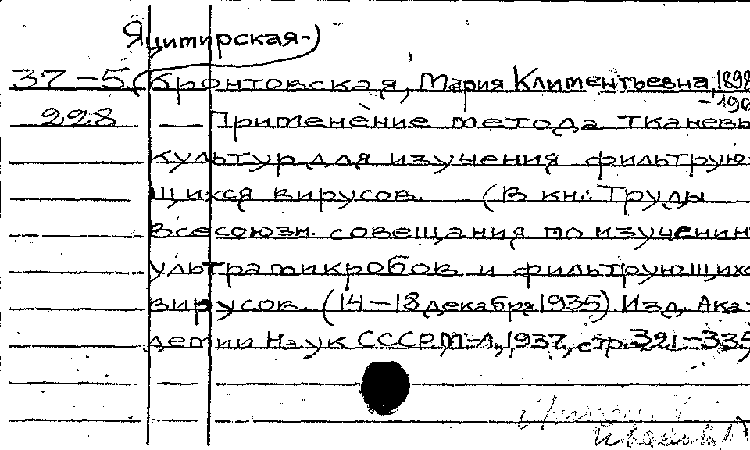 Яцимирская-)
37-5 (Бронтовская, Мария Климентьевна, 1898
-196
228 — Применение метода тканевы
культур для изучения фильтрую-
щихся вирусов. (В кн: Труды
Всесоюзн. совещания по изучению
ультрамикробов и фильтрующихс
вирусов. (14-18 декабря 1935) Изд. Ака-
демии Наук СССР М-Л, 1937, стр. 321-335)